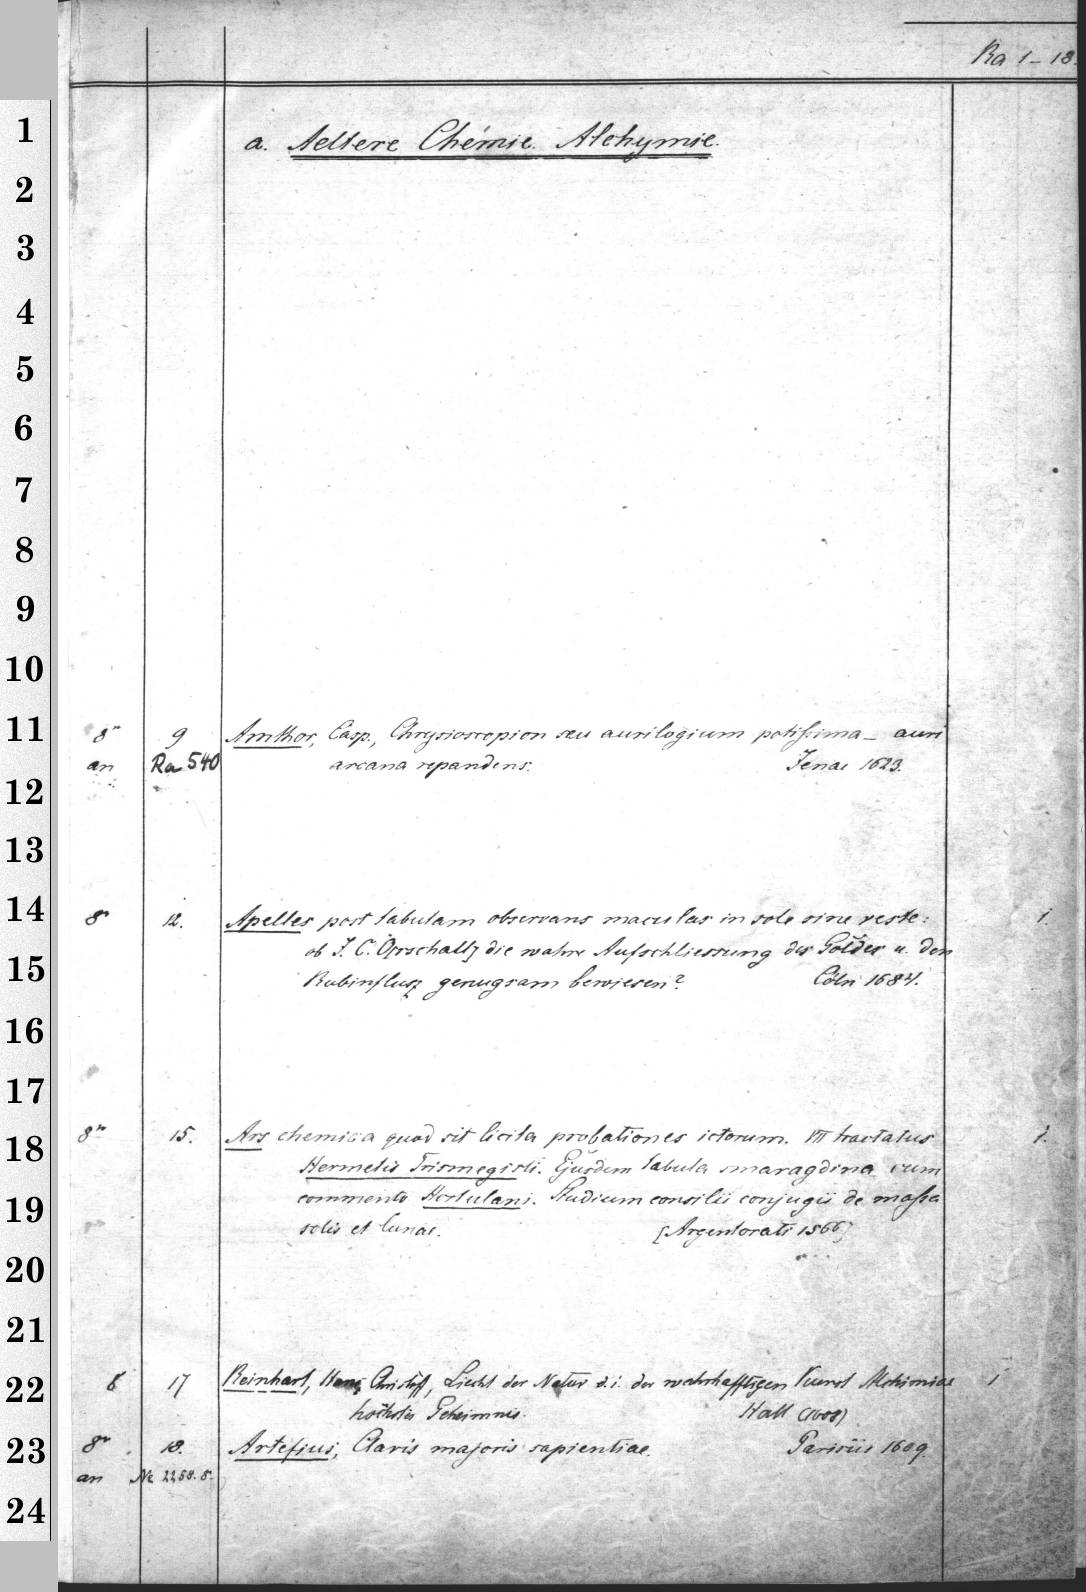 Ra 1-18.
1
a. Aeltere Chemie. Alchymie.
2
3
4
5
6
7
8
9
10
11
8° 9 Amthor, Casp., Chrysioscopion seu aurilogium potissima — auri
an Ra 540 arcana repandens. Jenae 1623.
12
13
14
8° 12. Apelles post tabulam observans maculas in sole sine veste:
ob J. C. Orschall die wahre Aufschliessung des Goldes u. den
15
Rubinflusz genugsam bewiesen? Cöln 1684.
16
17
18
8° 15. Ars chemica quod sit licita probationes ictorum. VII tractatus
Hermetis Trismegisti. Ejusdem tabula smaragdina cum
19
commento Hortulani. Studium consilii conjugii de massa
solis et lunae. [Argentorati 1566]
20
21
22
8 17 Reinhart, Hans Christoff, Liecht der Natur d. i. der wahrhafftigen Kunst Alchimiae
Hall (1608)
23
8° 18. Artefius, Clavis majoris sapientiae. Parisiis 1609.
an
24